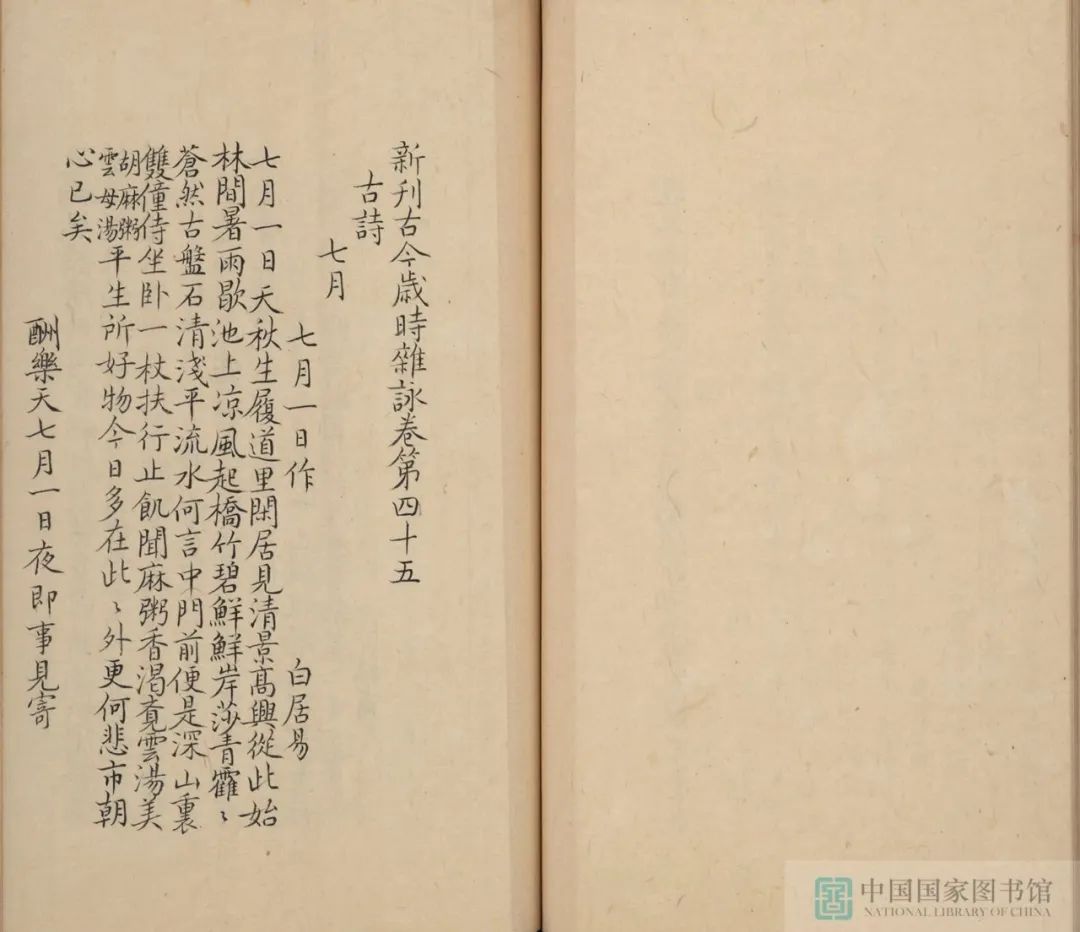 新刊古今歳時雜詠卷第四十五
古詩
七月
七月一日作 白居易
七月一日天秋生履道里閑居見清景髙興從此始
林間暑雨歇池上凉風起橋竹碧鮮鮮岸莎青靃〻
蒼然古盤石清淺平流水何言中門前便是深山裏
雙僮侍坐卧一杖扶行止飢聞麻粥香渴覔雲湯美
胡麻粥雲母湯平生所好物今日多在此〻外更何悲市朝
心已矣
酬樂天七月一日夜即事見寄
中国国家图书馆
NATIONAL LIBRARY OF CHINA